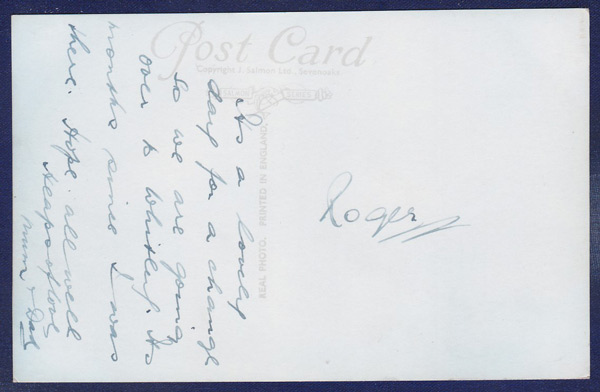 Post Card
Copyright J. Salmon Ltd., Sevenoaks
REAL PHOTO. PRINTED IN ENGLAND.
Its a lovely
day for a change
so we are going
over to Whitley. Its
months since I was
there. Hope all well
Heaps of love
Mum & Dad
Roger